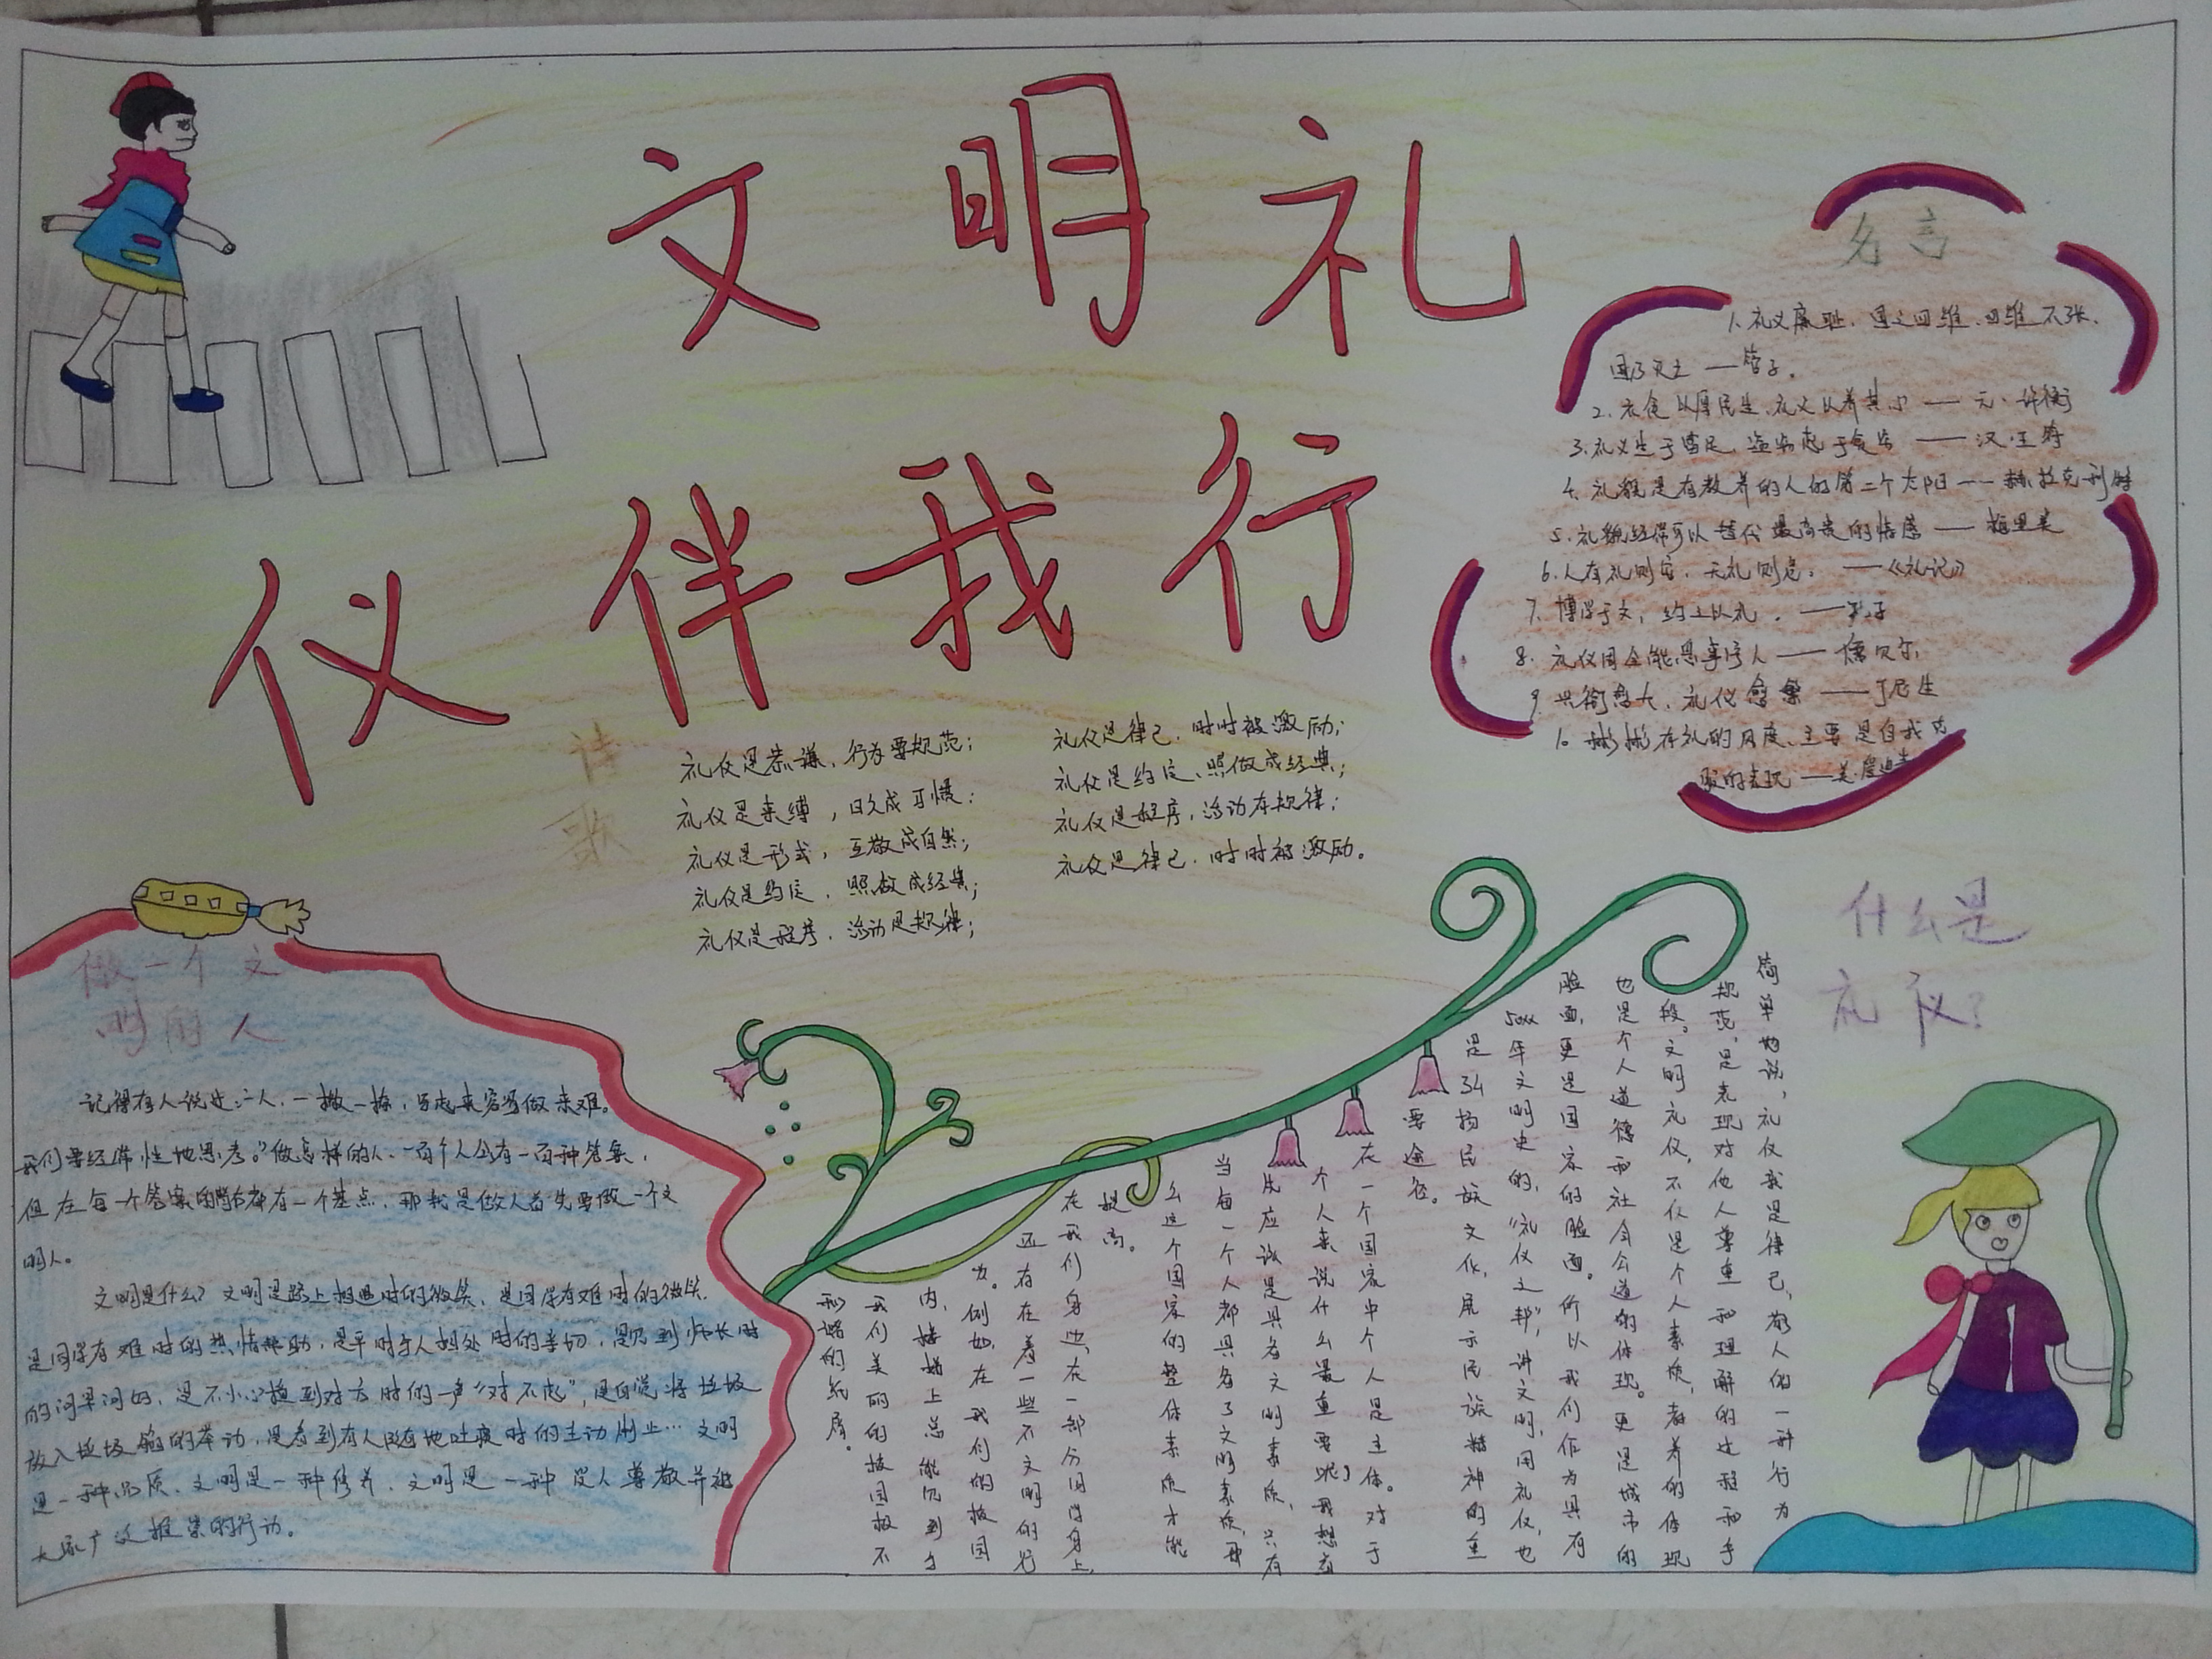 文明礼
仪伴我行
名言
1. 礼义廉耻，国之四维，四维不张，
国乃灭亡 —管子。
2. 衣食以厚民生，礼义以养其心 —— 元·许衡
3. 礼义生于富足，盗窃起于贫穷 —— 汉·王符
4. 礼貌是有教养的人的第二个太阳 —— 赫拉克利特
5. 礼貌经常可以替代最高贵的情感 —— 梅里美
6. 人有礼则安，无礼则危。 ——《礼记》
7. 博学于文，约之以礼。 ——孔子
8. 礼仪周全能息事宁人 —— 儒贝尔
9. 兴衔愈大，礼仪愈繁 ——丁尼生
10. 彬彬有礼的风度，主要是自我克
服的表现 ——美·爱迪生
诗
歌
礼仪是恭谦，行为要规范；
礼仪是束缚，日久成习惯；
礼仪是形式，互敬成自然；
礼仪是约定，照做成经典；
礼仪是程序，活动是规律；
礼仪是律己，时时被激励；
礼仪是约定，照做成经典；
礼仪是程序，活动有规律；
礼仪是律己，时时被激励。
做一个文
明的人
记得有人说过：人，一撇一捺，写起来容易做来难。
我们要经常性地思考。"做怎样的人，一百个人会有一百种答案，
但在每一个答案的背后都有一个基点，那就是做人首先要做一个文
明人。
文明是什么？文明是路上相遇时的微笑，是同学有难时的微笑，
是同学有难时的热情帮助，是平时与人相处时的亲切，是见到师长时
的问早问好，是不小心撞到对方时的一声"对不起"，是自觉将垃圾
放入垃圾箱的举动，是看到有人随地吐痰时的主动制止…文明
是一种品质，文明是一种修养，文明是一种受人尊敬并被
大家广泛推崇的行动。
什么是
礼仪？
简单地说，礼仪就是律己，敬人的一种行为
规范，是表现对他人尊重和理解的过程和手
段。文明礼仪，不仅是个人素质，教养的体现
也是个人道德和社会公道的体现。更是城市的
脸面，更是国家的脸面。所以我们作为具有
50xx年文明史的，"礼仪之邦"，讲文明，用礼仪，也
是弘扬民族文化，展示民族精神的重
要途径。
在一个国家中个人是主体。对于
个人来说什么最重要呢？我想首
先应该是具备文明素质，只有
当每一个人都具备了文明素质，那
么这个国家的整体素质才能
提高。
在我们身边，在一部分同学身上，
还有在着一些不文明的行
为。例如，在我们的校园
内，楼梯上总能见到与
我们美丽的校园极不
和谐的纸屑。